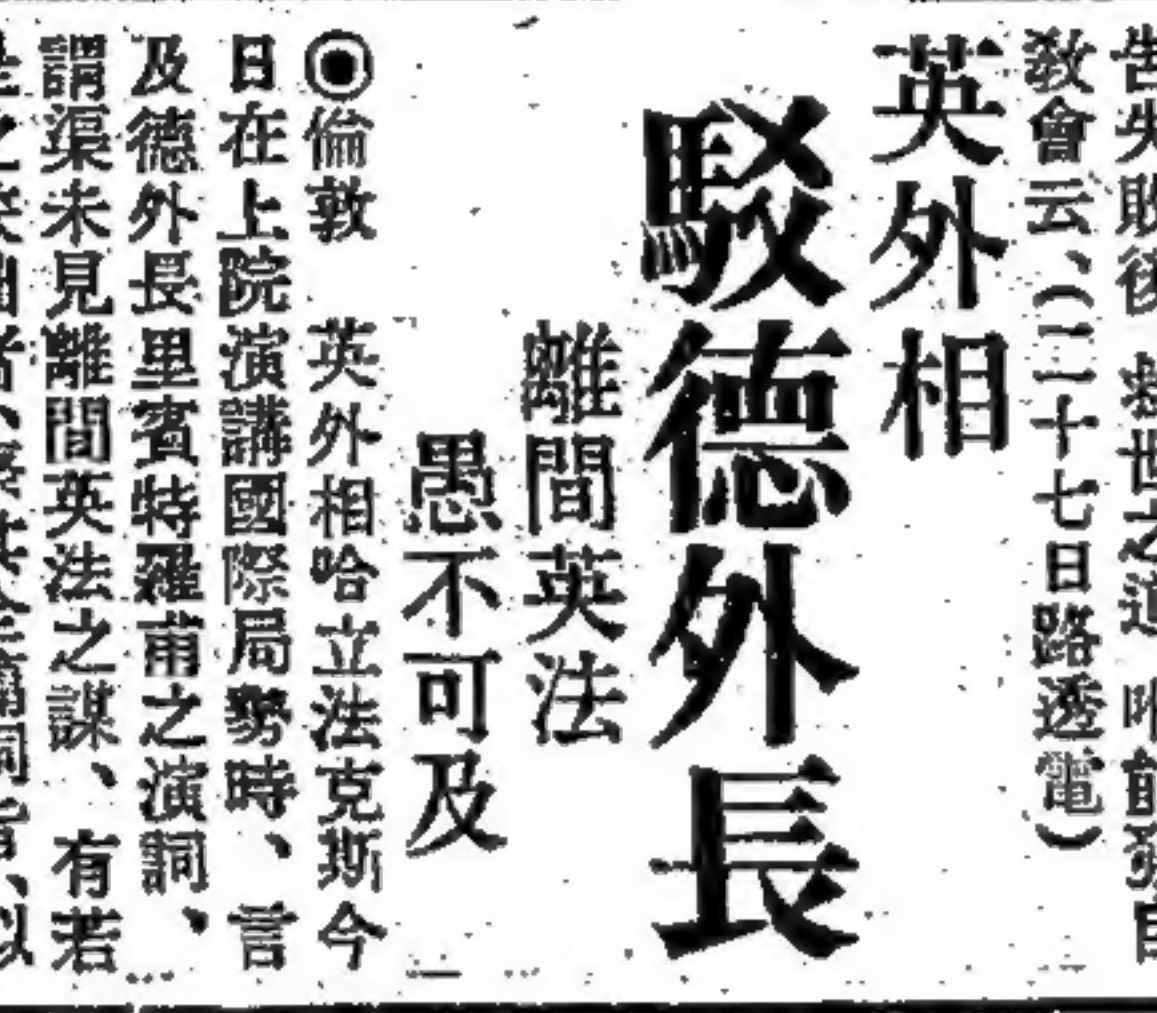 告失敗後 救世之道 唯能發自
教會云、(二十七日路透電)
英外相
駁德外長
離間英法
愚不可及
◎倫敦 英外相哈立法克斯今
日在上院演講國際局勢時、言
及德外長里賓特羅甫之演詞、
謂渠未見離間英法之謀、有若
是之